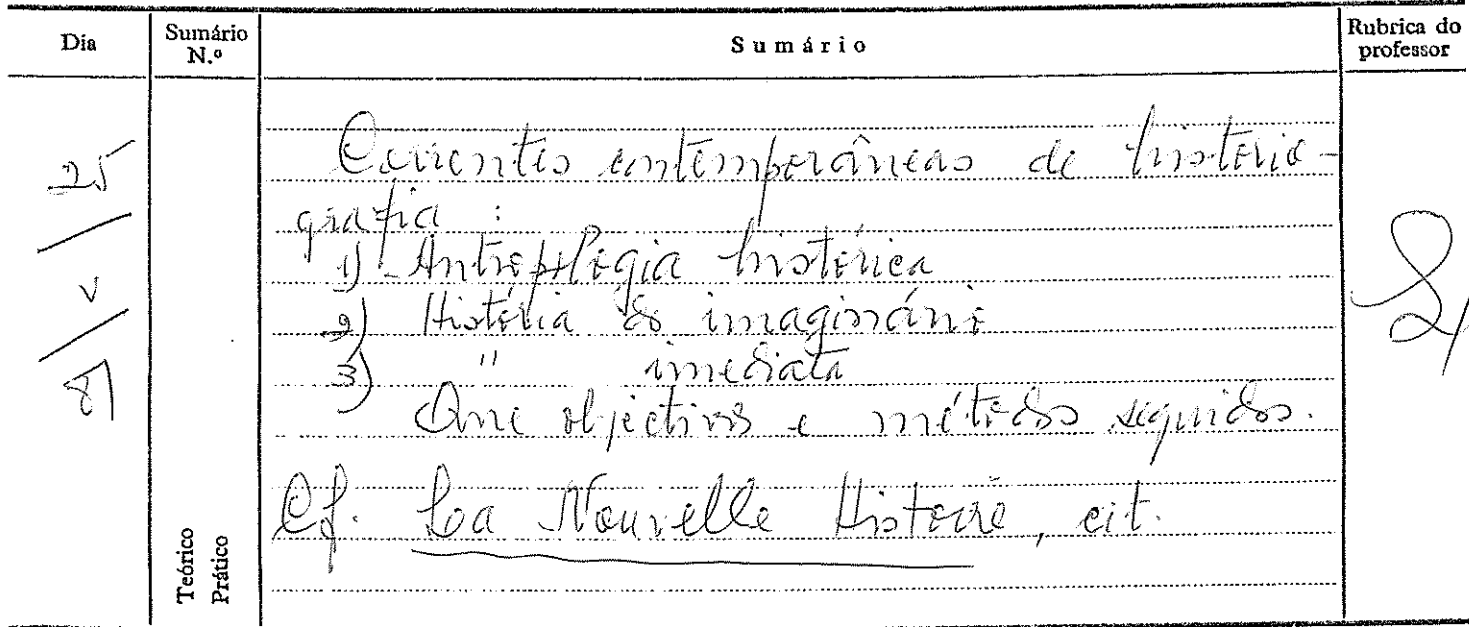 Dia
Sumário N.º
Sumário
Rubrica do professor
25
V
81
Correntes contemporâneas de historio-
grafia :
1) - Antropologia histórica
2) História do imaginário
3) " imediata
Que objectivos e métodos seguidos.
Cf. La Nouvelle Histoire, cit.
Teórico
Prático